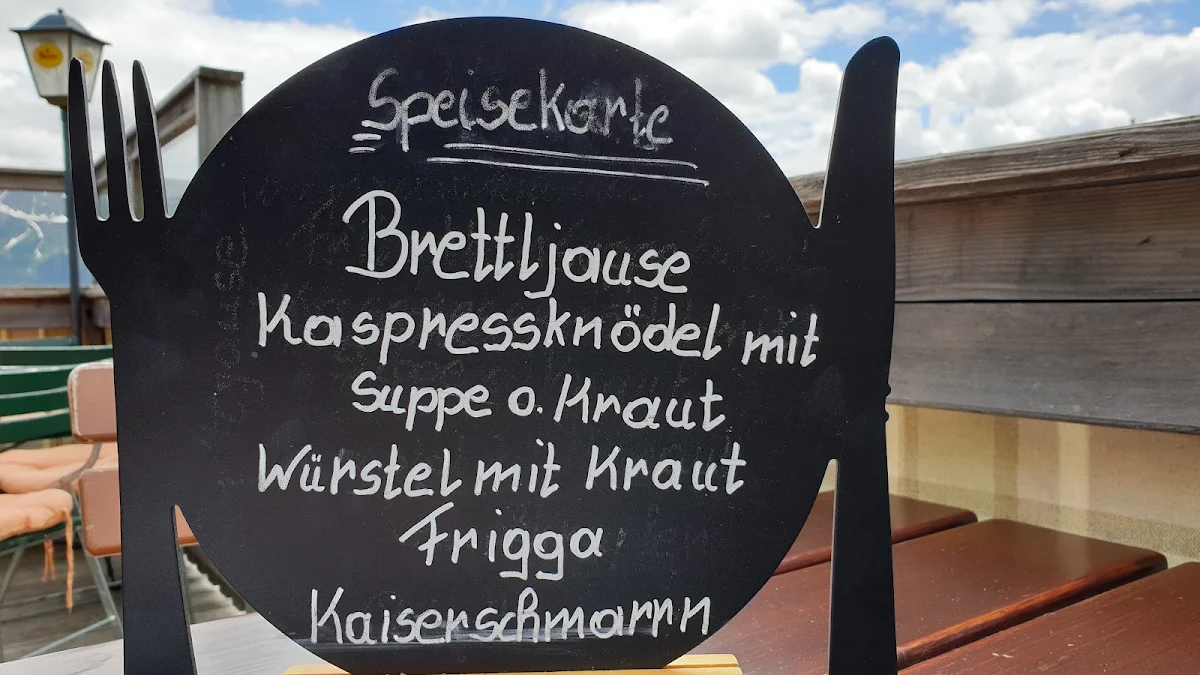 Speisekarte
Brettljause
Kaspressknödel mit
Suppe o. Kraut
Würstel mit Kraut
Frigga
Kaiserschmarrn